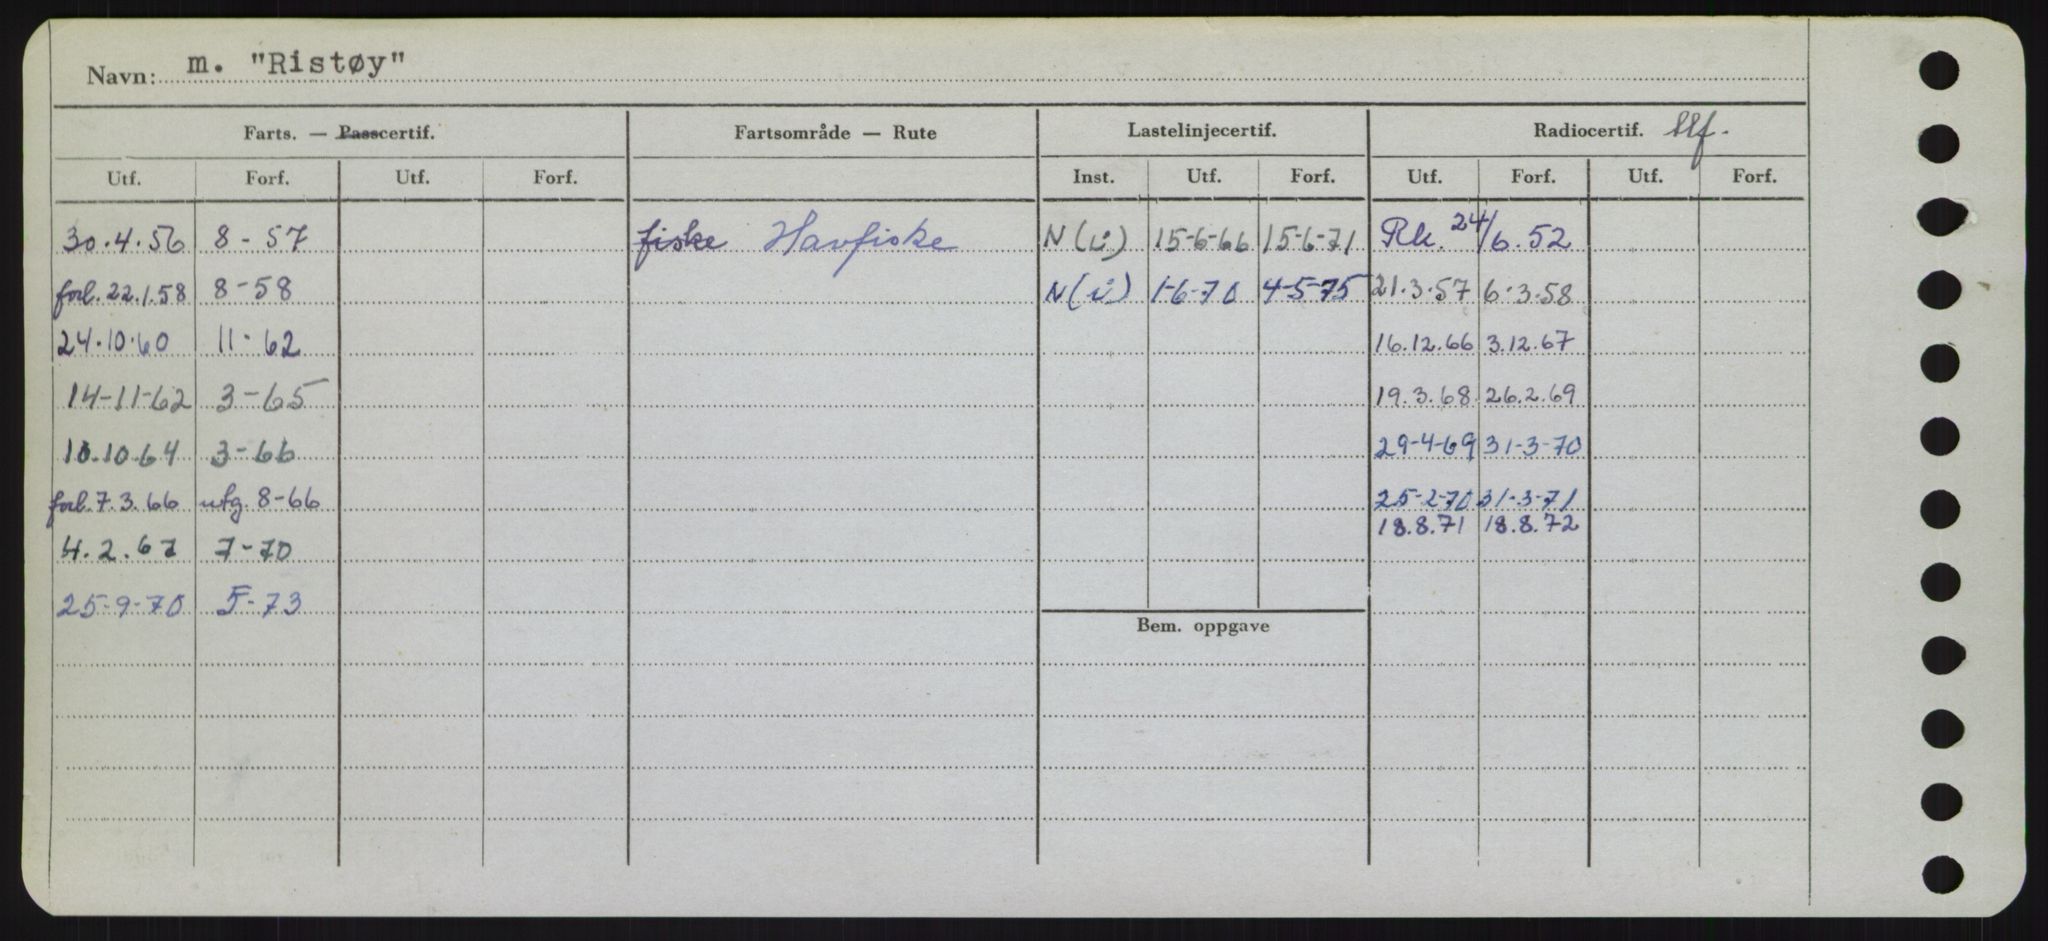 Navn: m. "Ristøy"
Farts. — Passcertif. Fartsområde — Rute Lastelinjecertif. Radiocertif. tlf.
Utf. Forf. Utf. Forf. Inst. Utf. Forf. Utf. Forf. Utf. Forf.
30.4.56 8-57 fiske Havfiske N(i) 15-6-66 15-6-71 Rk. 24/6.52
forl. 22.1.58 8-58 N(i) 1-6-70 4-5-75 21.3.57 6.3.58
24.10.60 11-62 16.12.66 3.12.67
14-11-62 3-65 19.3.68 26.2.69
10.10.64 3-66 29-4-69 31-3-70
forl. 7.3.66 utg. 8-66 25-2-70 31-3-71
18.8.71 18.8.72
4.2.67 7-70
25-9-70 5-73
Bem. oppgave